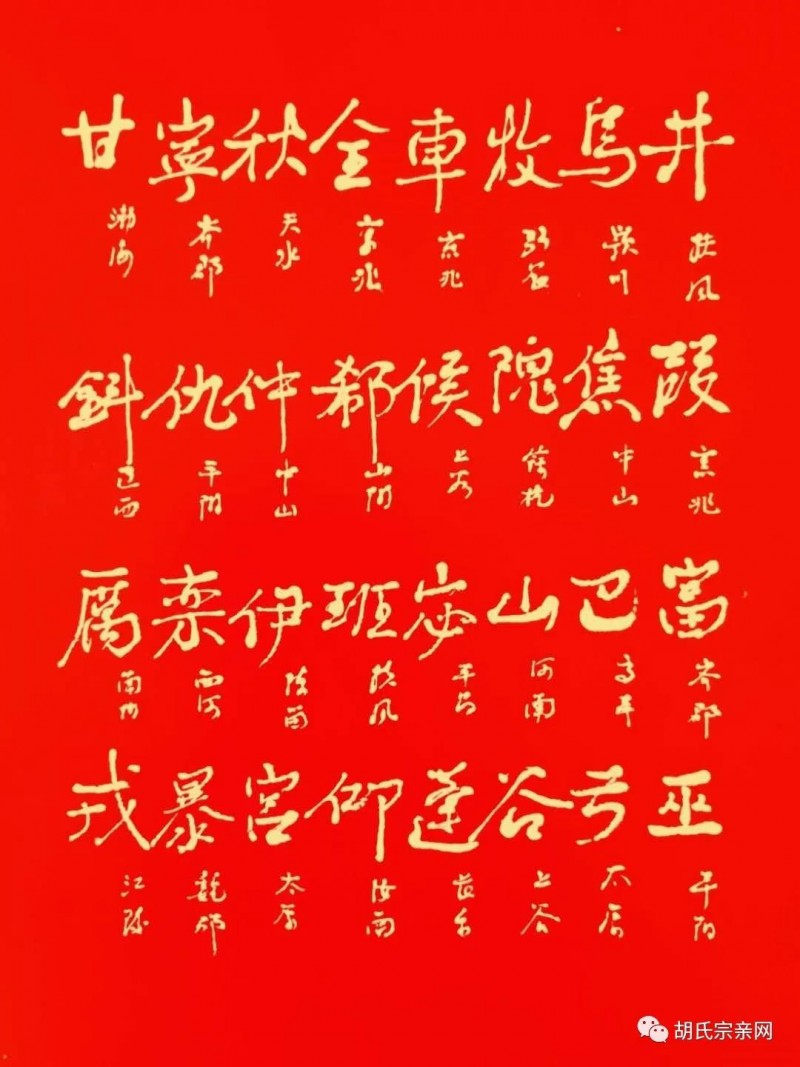 井 扶风 段 京兆 富 齐郡 巫 平阳
烏 颍川 焦 中山 巴 高平 弓 太原
牧 弘农 隗 馀杭 山 河南 谷 上谷
車 京兆 候 上谷 宓 平昌 蓬 长乐
全 京兆 郗 山阳 班 扶风 仰 汝南
秋 天水 仲 中山 伊 陈留 宫 太原
寧 齐郡 仇 平阳 栾 西河 暴 魏郡
甘 渤海 鈄 辽西 厲 南阳 戎 江陵
胡氏宗亲网